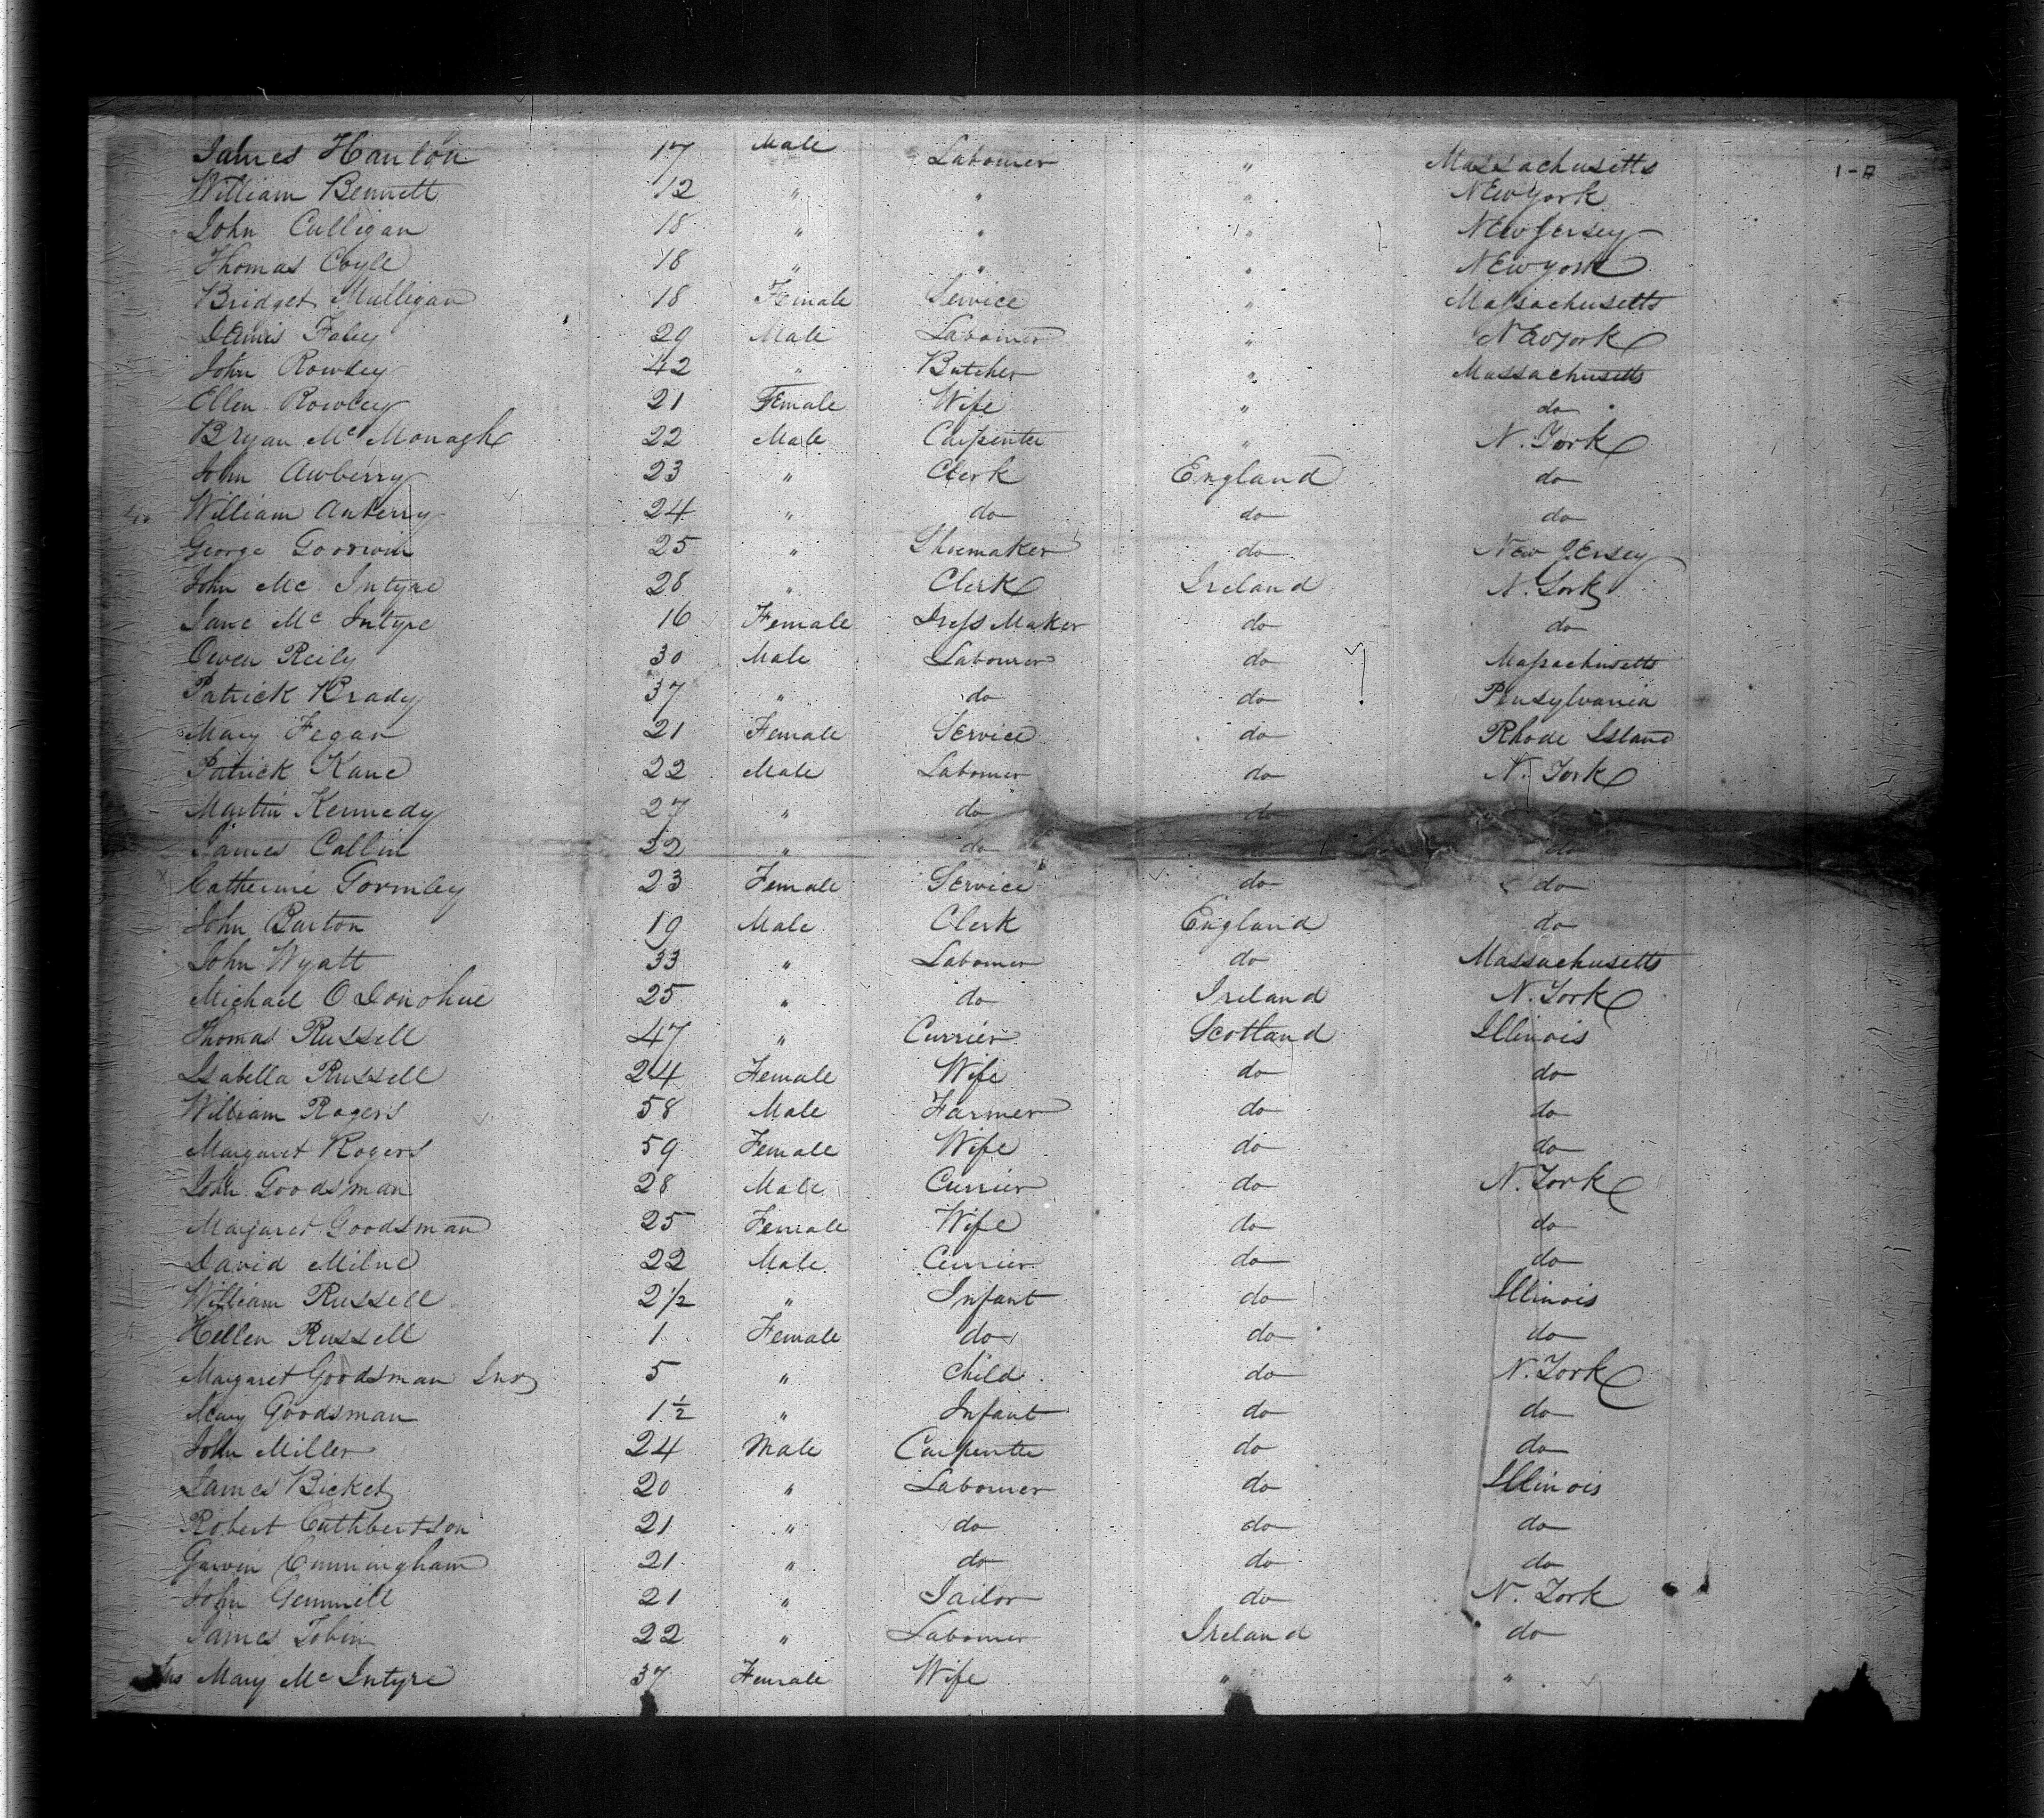 James Hanlon 17 Male Labourer " Massachusetts 1-A
William Bennett 12 " " " New York
John Culligan 18 " " " New Jersey
Thomas Coyle 18 " " " New York
Bridget Mulligan 18 Female Service " Massachusetts
Dennis Foley 29 Male Labourer " New York
John Rowley 42 " Butcher " Massachusetts
Ellen Rowley 21 Female Wife " do
Bryan Mc Monagle 22 Male Carpenter " N. York
John Awberry 23 " Clerk England do
William Awberry 24 " do do do
George Goodwin 25 " Shoemaker do New Jersey
John Mc Intyre 28 " Clerk Ireland N. York
Jane Mc Intyre 16 Female Dress Maker do do
Owen Reily 30 Male Labourer do Massachusetts
Patrick Brady 37 " do do Pensylvania
Mary Fegan 21 Female Service do Rhode Island
Patrick Kane 22 Male Labourer do N. York
Martin Kennedy 27 " do do do
James Callin 22 " do do
Catherine Gormley 23 Female Service do do
John Barton 19 Male Clerk England do
John Wyatt 33 " Labourer do Massachusetts
Michael O Donohue 25 " do Ireland N. York
Thomas Russell 47 " Currier Scotland Illinois
Isabella Russell 24 Female Wife do do
William Rogers 58 Male Farmer do do
Margaret Rogers 59 Female Wife do do
John Goodsman 28 Male Currier do N. York
Margaret Goodsman 25 Female Wife do do
David Milne 22 Male Currier do do
William Russell 2 1/2 " Infant do Illinois
Hellen Russell 1 Female do do do
Margaret Goodsman Jnr 5 " Child do N. York
Mary Goodsman 1 1/2 " Infant do do
John Miller 24 Male Carpenter do do
James Bicket 20 " Labourer do Illinois
Robert Cuthbertson 21 " do do do
Gavin Cunningham 21 " do do do
John Gemmell 21 " Tailor do N. York
James Tobin 22 " Labourer Ireland do
Mary Mc Intyre 37 Female Wife " "